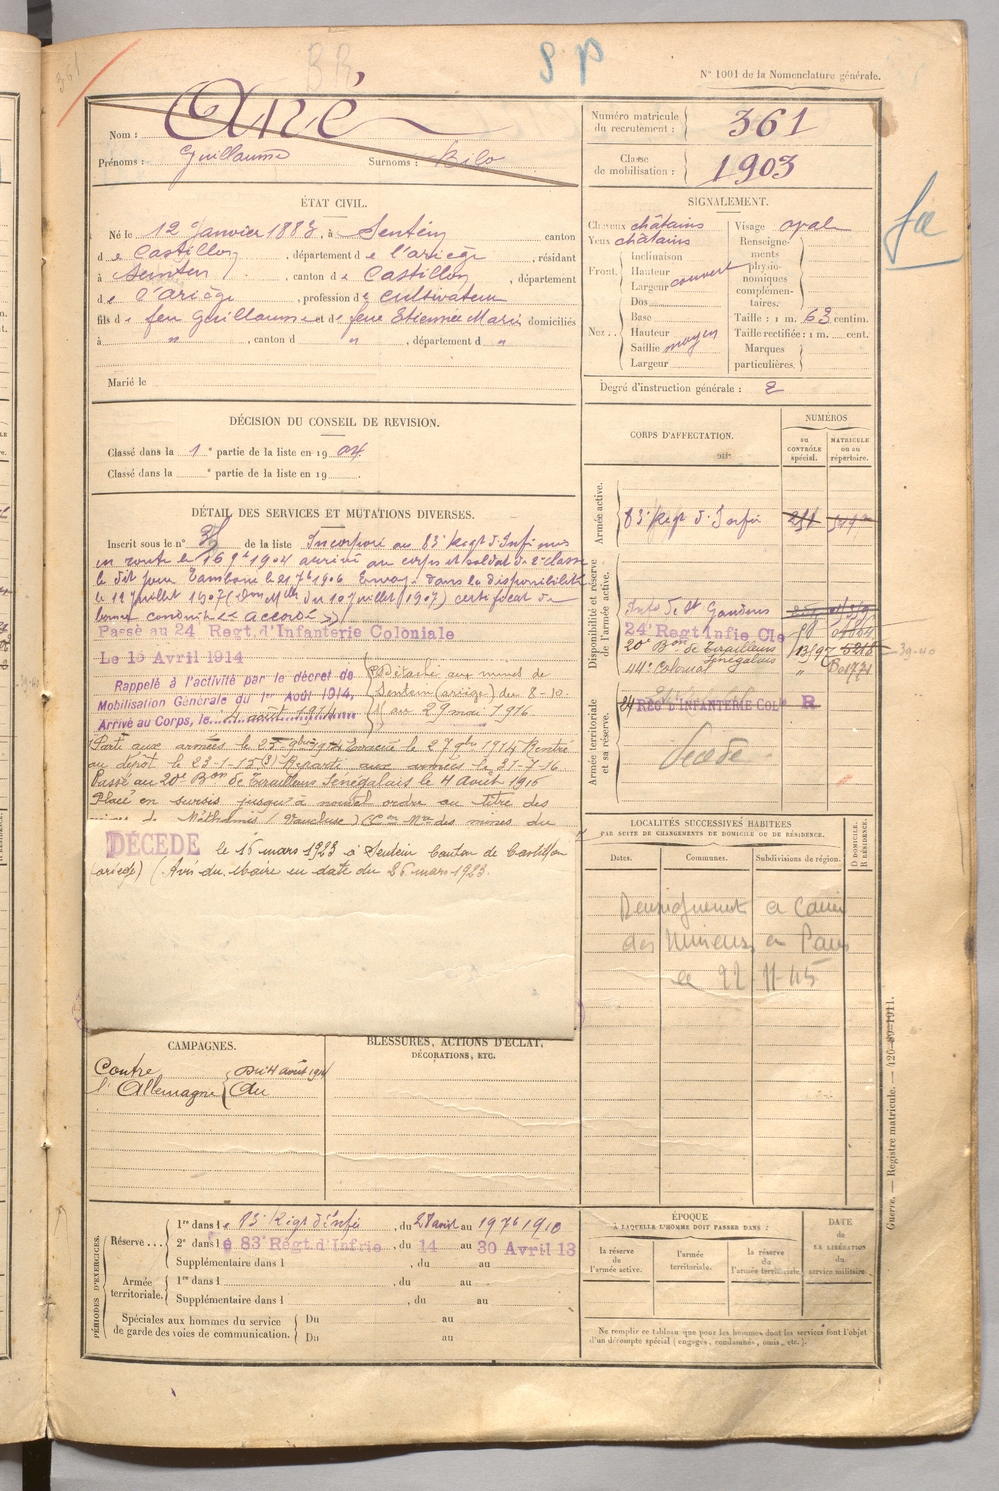 361
BR
SP
N° 1001 de la Nomenclature générale.
Nom : Ané
Prénoms : Guillaume Surnoms : Kilo
Numéro matricule du recrutement : 361
Classe de mobilisation : 1903
ÉTAT CIVIL.
Né le 12 Janvier 1883, à Sentein canton
de Castillon, département de l'ariège, résidant
à Sentein, canton de Castillon, département
de l'Ariège, profession de cultivateur
fils de feu Guillaume et de feue Etiennee Marie domiciliés
à " , canton d " , département d "
Marié le
SIGNALEMENT.
Cheveux châtains
Yeux châtains
Front.
Inclinaison
Hauteur
Largeur couvert
Nez..
Dos
Base
Hauteur
Saillie moyen
Largeur
Visage oval
Renseignements physionomiques complémentaires.
Taille : 1 m. 63 centim.
Taille rectifiée : 1 m. cent.
Marques particulières.
Degré d'instruction générale : 2
fa
DÉCISION DU CONSEIL DE REVISION.
Classé dans la 1e partie de la liste en 1904
Classé dans la e partie de la liste en 19 .
CORPS D'AFFECTATION.
NUMÉROS
au CONTRÔLE spécial.
MATRICULE ou au répertoire.
Armée active.
83e Regt d'Infie
Disponibilité et réserve de l'armée active.
Infie de St Gaudens
24e Regt Infie Cle
20e Bon de Tirailleurs Sénégalais
44e Colonial "
39-40
Armée territoriale et sa réserve.
24 REGt D'INFANTERIE COLle R
Décédé
DÉTAIL DES SERVICES ET MUTATIONS DIVERSES.
Inscrit sous le n° de la liste Incorporé au 83e Regt d'Infie mis
en route le 16 9bre 1904 arrivé au corps et soldat de 2e classe
le dit jour Tambour le 21 7bre 1906 Envoyé dans la disponibilité
le 12 Juillet 1907 (Don Mlle du 10 Juillet 1907) certificat de
bonne conduite « Accordé »
Passé au 24 Regt. d'Infanterie Coloniale
Le 15 Avril 1914
Rappelé à l'activité par le décret de
Mobilisation Générale du 1er Août 1914,
Arrivé au Corps, le 4 août 1914
Détaché aux mines de
Sentein (ariège) du 8-10-
au 29 mai 1916
Parti aux armées le 25 9bre 1914 Evacué le 27 9bre 1914 Rentré
au dépôt le 23-1-15 Reparti aux armées le 31-7-16
Passé au 20e Bon de Tirailleurs Sénégalais le 4 Août 1916
Placé en sursis jusqu'à nouvel ordre au titre des
mines de Méthamis (Vaucluse) des mines du
DÉCÉDÉ le 15 mars 1923 à Sentein Canton de Castillon
(ariège) (Avis du Maire en date du 26 mars 1923.
LOCALITÉS SUCCESSIVES HABITÉES
PAR SUITE DE CHANGEMENTS DE DOMICILE OU DE RÉSIDENCE.
Dates.
Communes.
Subdivisions de région.
D DOMICILE. R RÉSIDENCE.
Renseignement a Caisse
des Mineurs, a Paris
le 22-11-45
CAMPAGNES.
Contre l'Allemagne
Du 4 août 1914
Au
BLESSURES, ACTIONS D'ÉCLAT,
DÉCORATIONS, ETC.
PÉRIODES D'EXERCICES.
Réserve...
1re dans le 83e Régt d'Infie, du 28 avril au 1910
2e dans le 83e Régt. d'Infrie, du 14 au 30 Avril 13
Supplémentaire dans l , du au
Armée territoriale.
1re dans l , du au
Supplémentaire dans l , du au
Spéciales aux hommes du service de garde des voies de communication.
Du au
Du au
ÉPOQUE
À LAQUELLE L'HOMME DOIT PASSER DANS :
la réserve de l'armée active.
l'armée territoriale.
la réserve de l'armée territoriale.
DATE DE LA LIBÉRATION du service militaire.
Ne remplir ce tableau que pour les hommes dont les services font l'objet
d'un décompte spécial (engagés, condamnés, omis, etc.).
Guerre. — Registre matricule. — 420-89-1911.